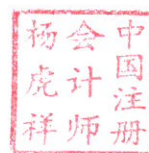 中国注册
会计师
杨虎祥